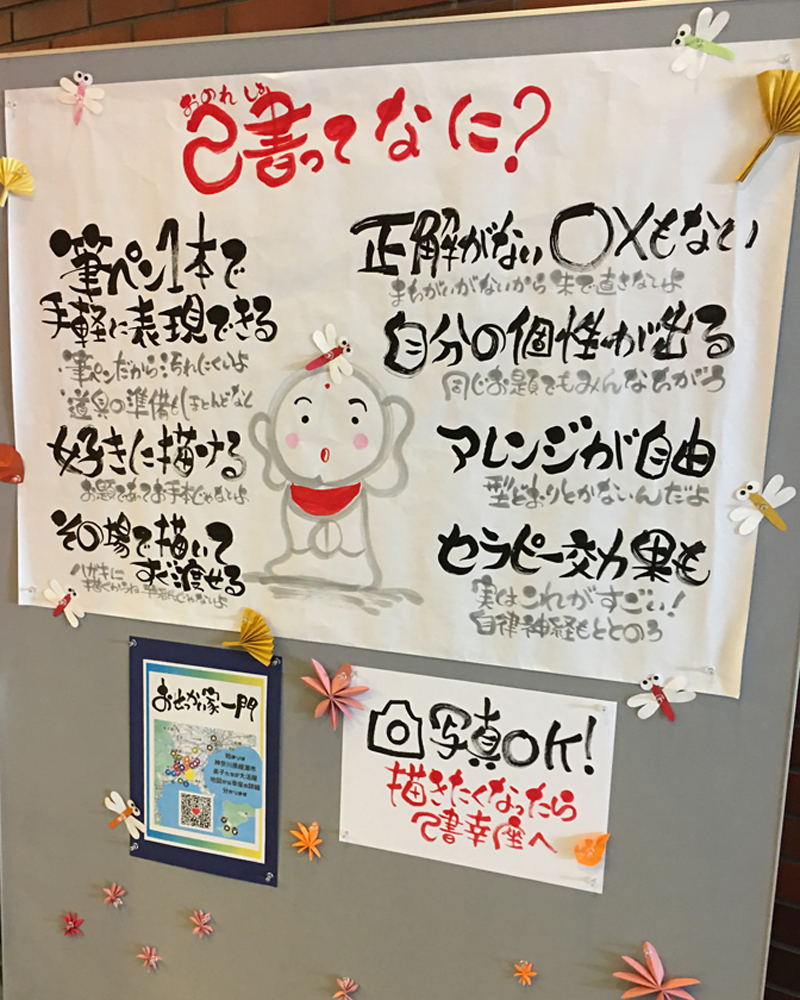 おのれ しょ
己書ってなに?
筆ペン1本で
手軽に表現できる
筆ペンだから汚れにくいよ
道具の準備もほとんどなし
好きに描ける
お題であってお手本じゃないよ
その場で描いて
すぐ渡せる
ハガキに
正解がない ○×もない
まちがいがないから 朱で直さないよ
自分の個性が出る
同じお題でもみんなちがう
アレンジが自由
型どおりとかないんだよ
セラピー効果も
実はこれがすごい!
自律神経もととのう
おせっかい家一門
神奈川県横須市
弟子たちが大活躍
地図から幸座の詳細
分かります
写真OK!
描きたくなったら
己書幸座へ